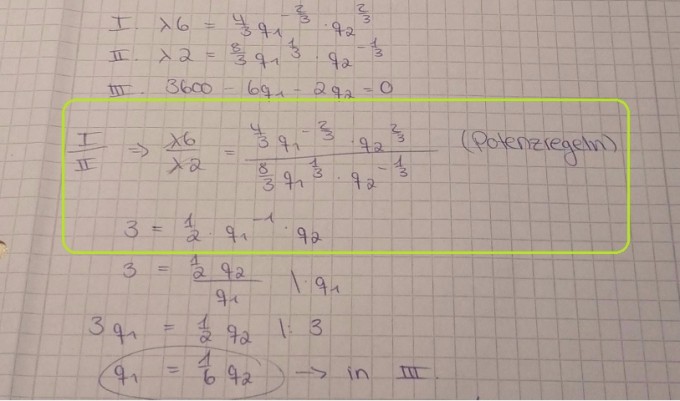 I. λ6 = 4/3 q₁^(-2/3) · q₂^(2/3)
II. λ2 = 8/3 q₁^(1/3) · q₂^(-1/3)
III. 3600 - 6q₁ - 2q₂ = 0
I/II => λ6/λ2 = (4/3 q₁^(-2/3) · q₂^(2/3))/(8/3 q₁^(1/3) · q₂^(-1/3)) (Potenzregeln)
3 = 1/2 · q₁^(-1) · q₂
3 = (1/2 q₂)/q₁ | · q₁
3q₁ = 1/2 q₂ | : 3
q₁ = 1/6 q₂ → in III.